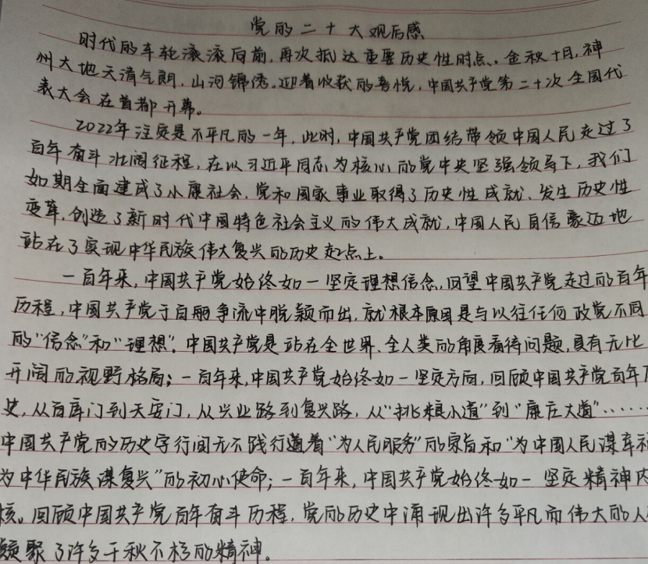 党的二十大观后感
时代的车轮滚滚向前，再次抵达重要历史性时点。金秋十月，神
州大地天清气朗，山河锦绣。迎着收获的喜悦，中国共产党第二十次全国代
表大会在首都开幕。
2022年注定是不平凡的一年，此时，中国共产党团结带领中国人民走过了
百年奋斗壮阔征程，在以习近平同志为核心的党中央坚强领导下，我们
如期全面建成了小康社会，党和国家事业取得了历史性成就、发生历史性
变革，创造了新时代中国特色社会主义的伟大成就，中国人民自信豪迈地
站在了实现中华民族伟大复兴的历史起点上。
一百年来，中国共产党始终如一坚定理想信念，回望中国共产党走过的百年
历程，中国共产党于百舸争流中脱颖而出，就根本原因是与以往任何政党不同
的“信念”和“理想”。中国共产党是站在全世界、全人类的角度看待问题，具有无比
开阔的视野格局；一百年来，中国共产党始终如一坚定方向，回顾中国共产党百年历
史，从石库门到天安门，从兴业路到复兴路，从“挑粮小道”到“康庄大道”……
中国共产党的历史字行间无不践行遵着“为人民服务”的宗旨和“为中国人民谋幸福
为中华民族谋复兴”的初心使命；一百年来，中国共产党始终如一坚定精神内
核。回顾中国共产党百年奋斗历程，党的历史中涌现出许多平凡而伟大的人
凝聚了许多千秋不朽的精神。